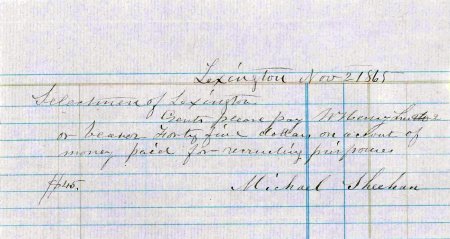 Lexington Nov 2 1865
Selectmen of Lexington
Gents please pay W Henry
or bearer Forty five dollars on account of
money paid for recruiting purposes
$45. Michael Sheehan